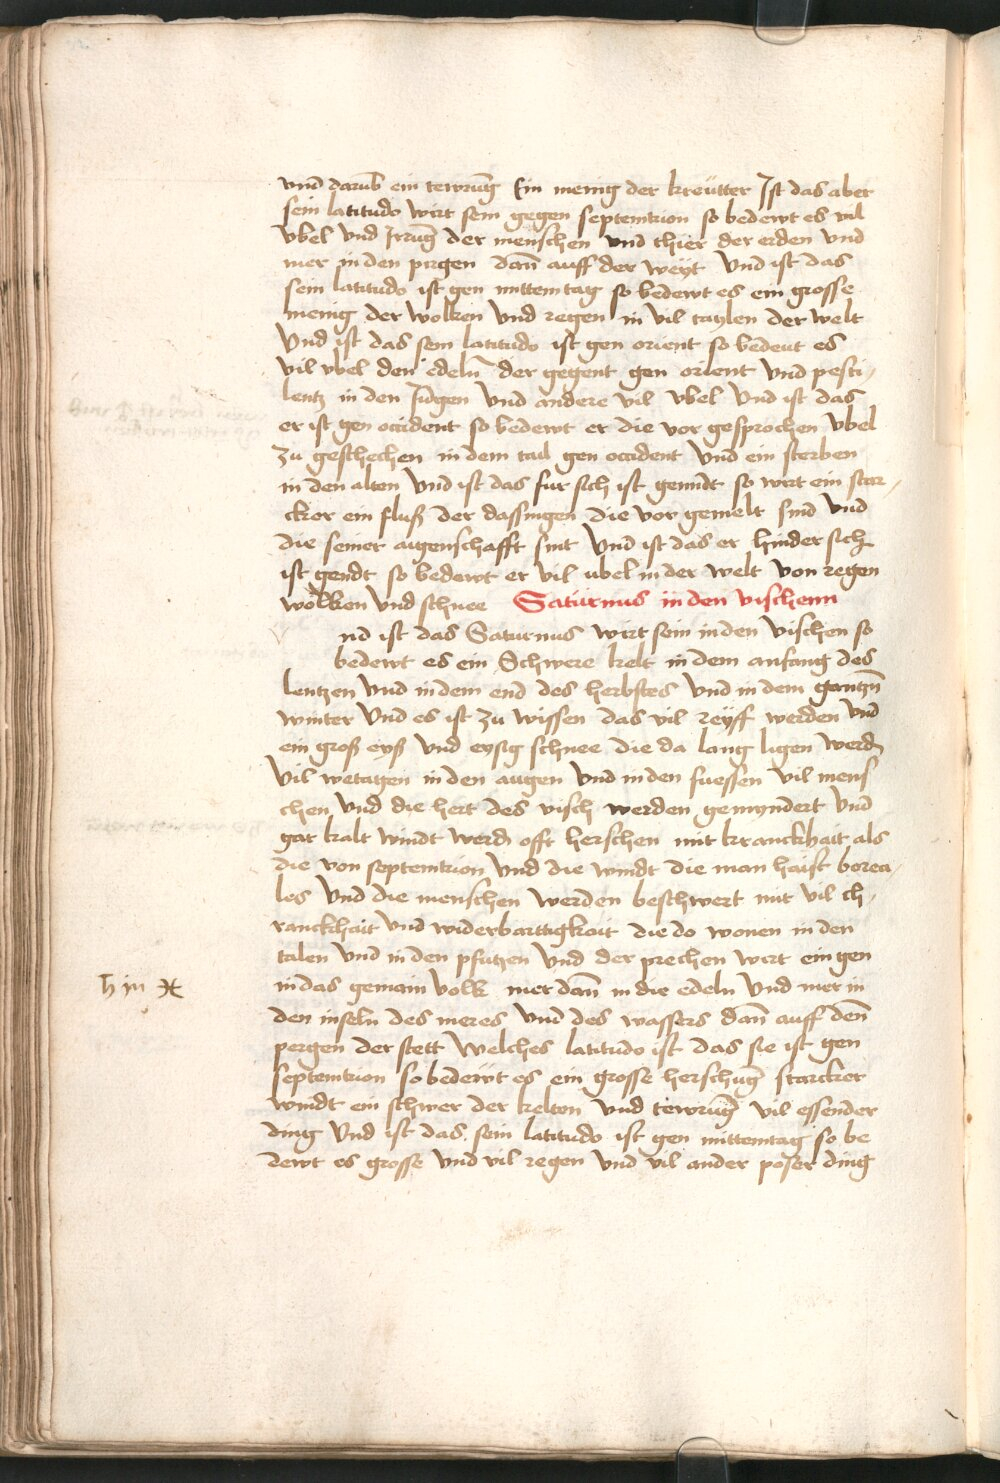 vnd darub ein tewrung Ein menig der kreütter Ist das aber
sein latitudo wirt sein gegen septemtrion so bedewt es vil
vbel vnd Irrung der menschen vnd thier der erden vnd
mer in den pirgen dan̄ auff der weyt Vnd ist das
sein latitudo ist gen mittemtag so bedewt es ein grosse
menig der wolken vnd regen in vil taylen der welt
Vnd ist das sein latitudo ist gen orient so bedeut es
vil vbel den edeln̄ der gegent gen orient vnd pesti/
lentz in den Iungen vnd andere vil vbel Vnd ist das
er ist gen occident so bedewt er die vor gesprochen vbel
zu geschechen in dem tail gen occident vnd ein sterben
in den alten vnd ist das fur sich ist genndt so wirt ein star/
cker ein fluß der dassingen die vor gemelt sind vnd
die seiner aigenschafft sint Vnd ist das er hinder sich
ist gendt so bedewt er vil ubel in der welt von regen
wolken vnd schnee Saturnus in den vischenn
nd ist das Saturnus wirt sein in den vischen so
bedewt es ein Schwere kelt in dem anfang des
lentzen vnd in dem end des herbstes vnd in dem gantzn̄
winter Vnd es ist zu wissen das vil reyff werden vnd
ein groß eyß vnd eysig schnee die da lang ligen werdn
Vil wetagen in den augen vnd in den fuessen vil mens
chen vnd die hert des visch werden gemyndert vnd
gar kalt windt werdn offt herschen mit kranckhait als
die von septemtrion vnd die windt die man haist borea/
les vnd die menschen werden beschwert mit vil ch/
ranckhait vnd widerbarttigkait die do wonen in den
talen vnd in den pfutzen vnd der prechen wirt ein gen
♄ in ♓
in das gemain volk mer dan̄ in die edeln vnd mer in
den inseln des meres vnd des wassers dan̄ auff den̄
pergen der stett Welches latitudo ist das sie ist gen
septemtrion so bedewt es ein grosse herschung starcker
windt ein schwer der kelten vnd tewrung vil essender
ding Vnd ist das sein latitudo ist gen mittemtag so be
dewt es grosse vnd vil regen vnd vil ander poser ding